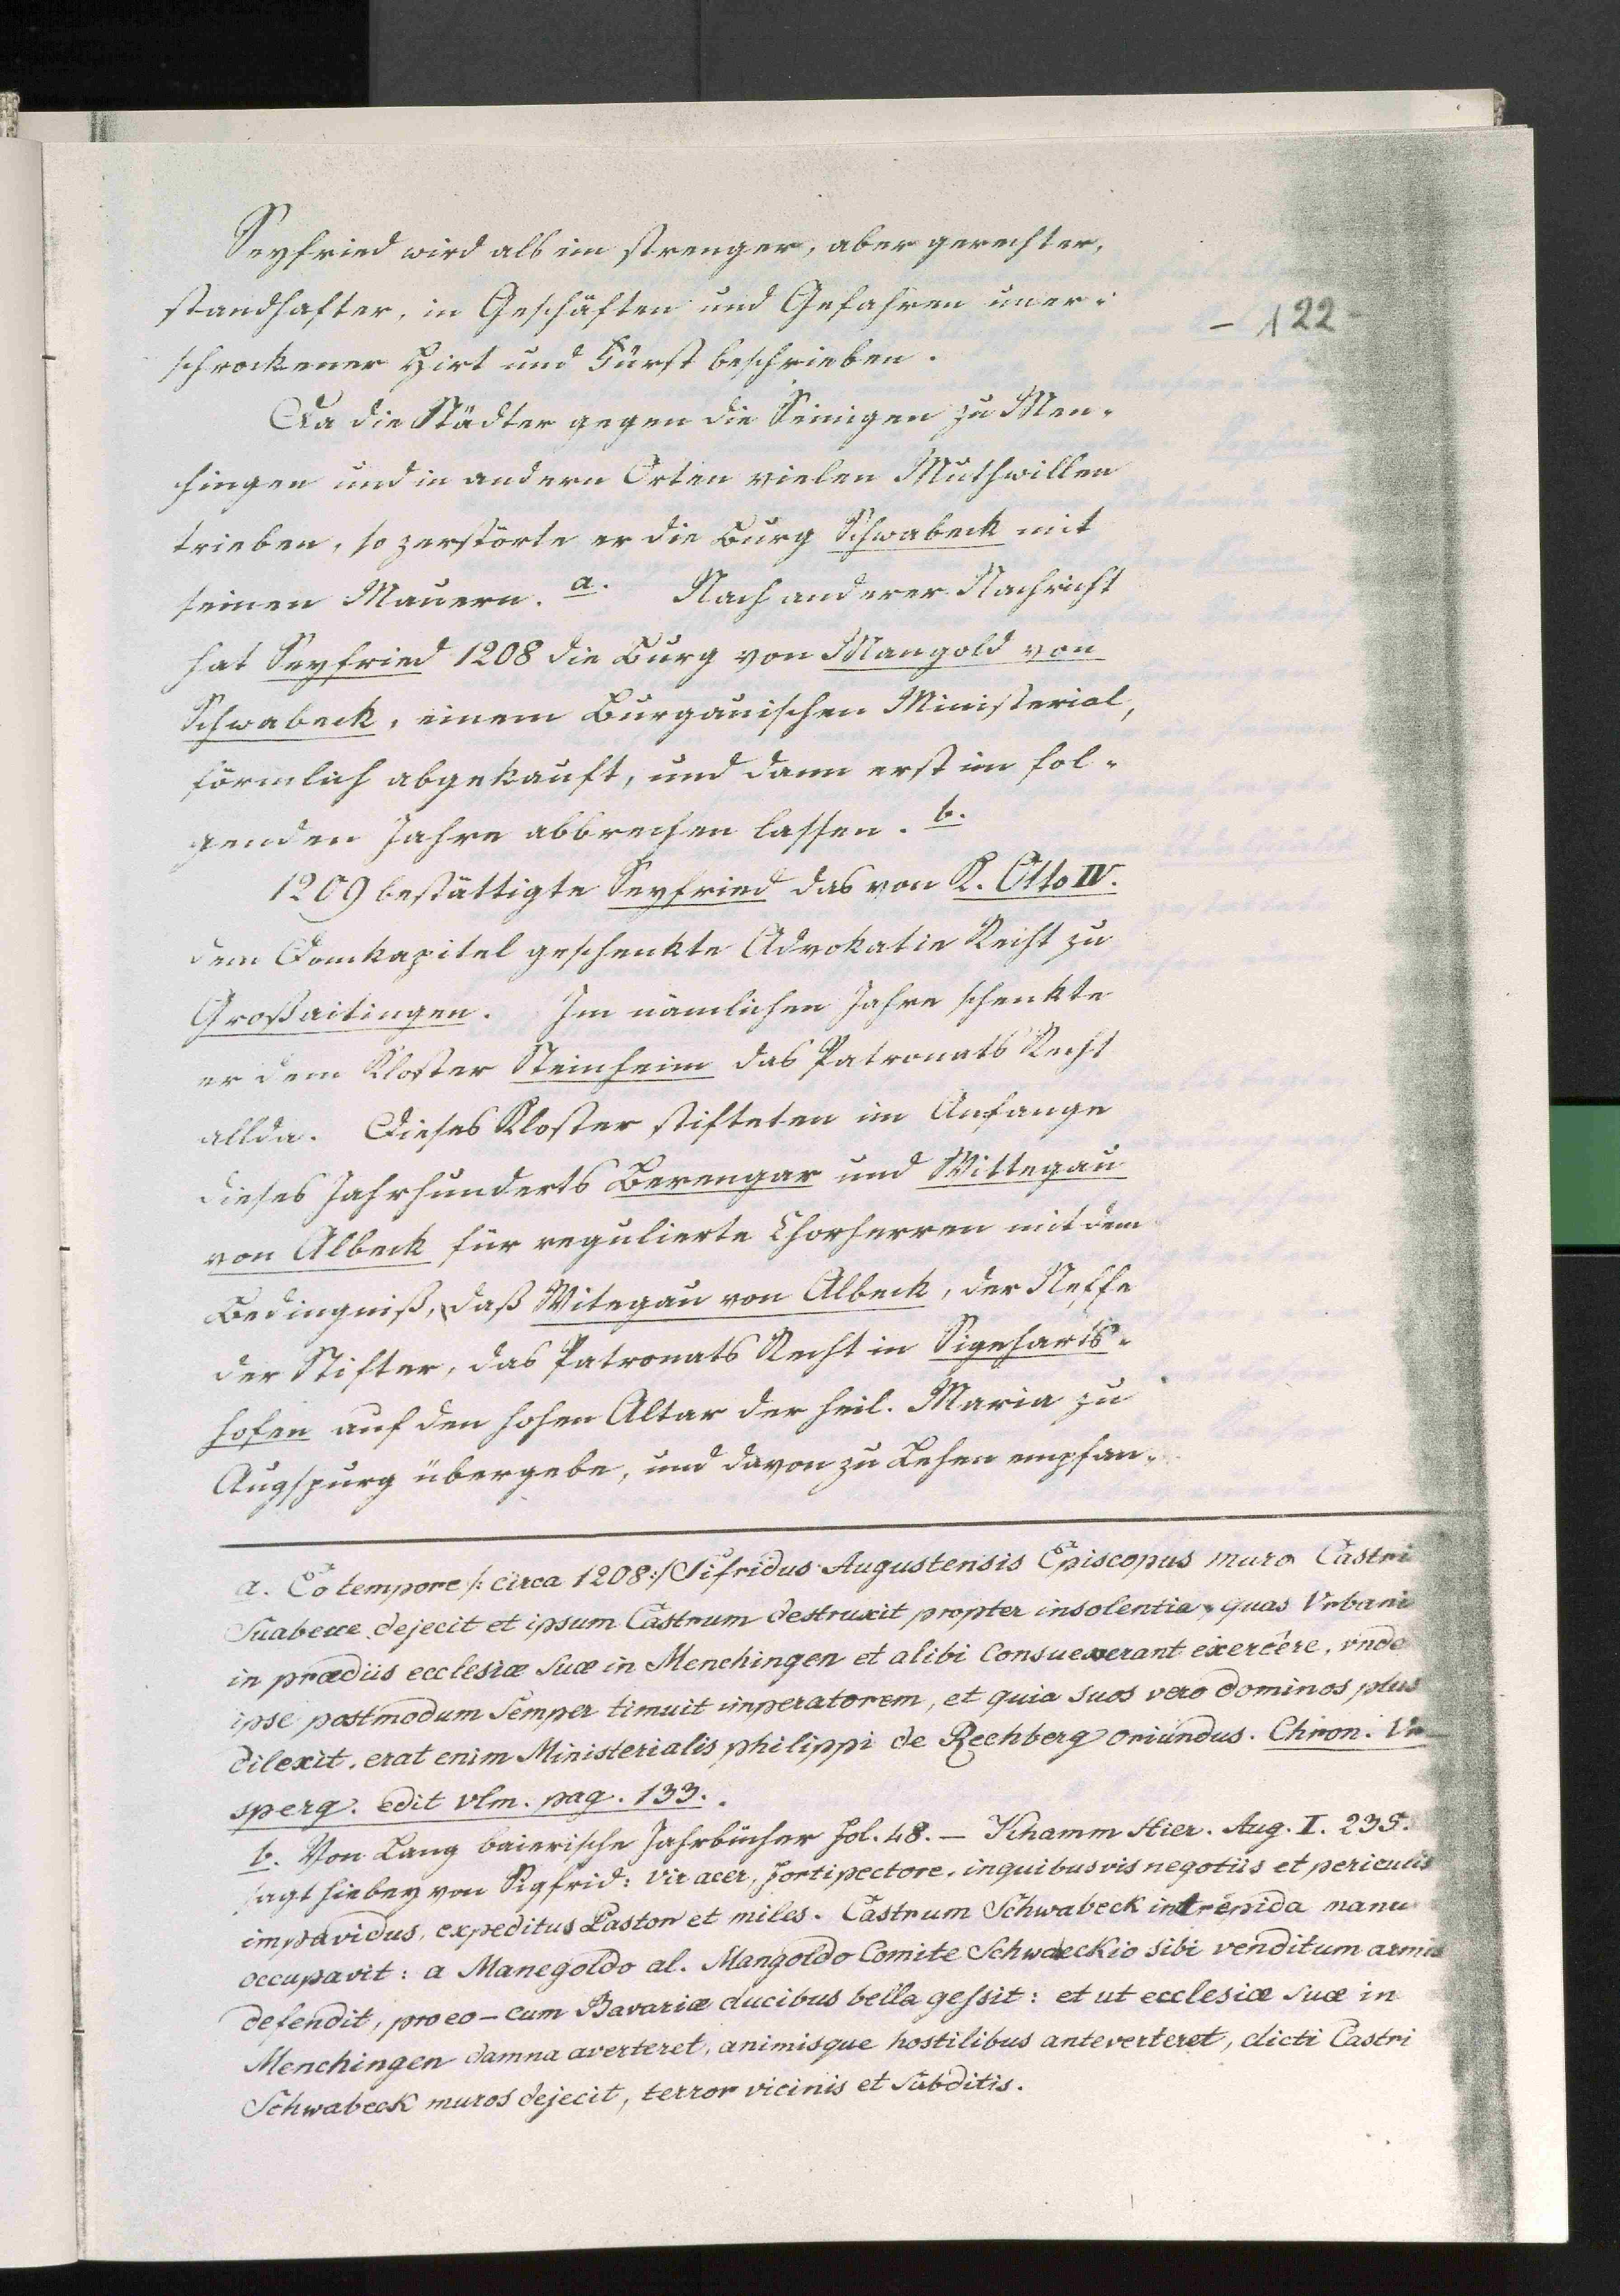 Seyfried wird als ein strenger, aber gerechter,
standhafter, in Geschäften und Gefahren uner-
- 122 -
schrockener Hirt und Fürst beschrieben.
Da die Städter gegen die Seinigen zu Men-
chingen und in andern Orten vielen Muthwillen
trieben, so zerstörte er die Burg Schwabeck mit
seinen Mauern. a. Nach anderer Nachricht
hat Seyfried 1208 die Burg von Mangold von
Schwabeck, einem Burgauischen Ministerial,
förmlich abgekauft, und dann erst im fol-
genden Jahre abbrechen lassen. b.
1209 bestättigte Seyfried das von K. Otto IV.
dem Domkapitel geschenkte Advokatie Recht zu
Großaitingen. Im nämlichen Jahre schenkte
er dem Kloster Steinheim das Patronats Recht
allda. Dieses Kloster stifteten im Anfange
dieses Jahrhunderts Berengar und Wittegau
von Albeck für regulierte Chorherren mit dem
Bedingniß, daß Witegau von Albeck, der Neffe
der Stifter, das Patronats Recht in Sigeharts-
hofen auf den hohen Altar der heil. Maria zu
Augspurg übergebe, und davon zu Lehen empfan-
a. Eo tempore /: circa 1208:/ Sifridus Augustensis Episcopus muro Castri
Suabece dejecit et ipsum Castrum destruxit propter insolentia, quas Vrbani
in prædiis ecclesiæ suæ in Menchingen et alibi consueverant exercere, vnde
ipse postmodum semper timuit imperatorem, et quia suos vero dominos plus
dilexit, erat enim Ministerialis philippi de Rechberg oriundus. Chron. Vr
sperg. edit vlm. pag. 133.
b. Von Lang baierische Jahrbücher fol. 48. — Khamm Hier. Aug. I. 235.
sagt hiebey von Sigfrid: Vir acer, fortipectore, inquibusvis negotiis et periculis
impavidus, expeditus Pastor et miles. Castrum Schwabeck intrepida manu
occupavit: a Manegoldo al. Mangoldo Comite Schwaeckio sibi venditum armis
defendit, pro eo - cum Bavariæ ducibus bella gessit: et ut ecclesiæ suæ in
Menchingen damna averteret, animisque hostilibus anteverteret, dicti Castri
Schwabeck muros dejecit, terror vicinis et subditis.